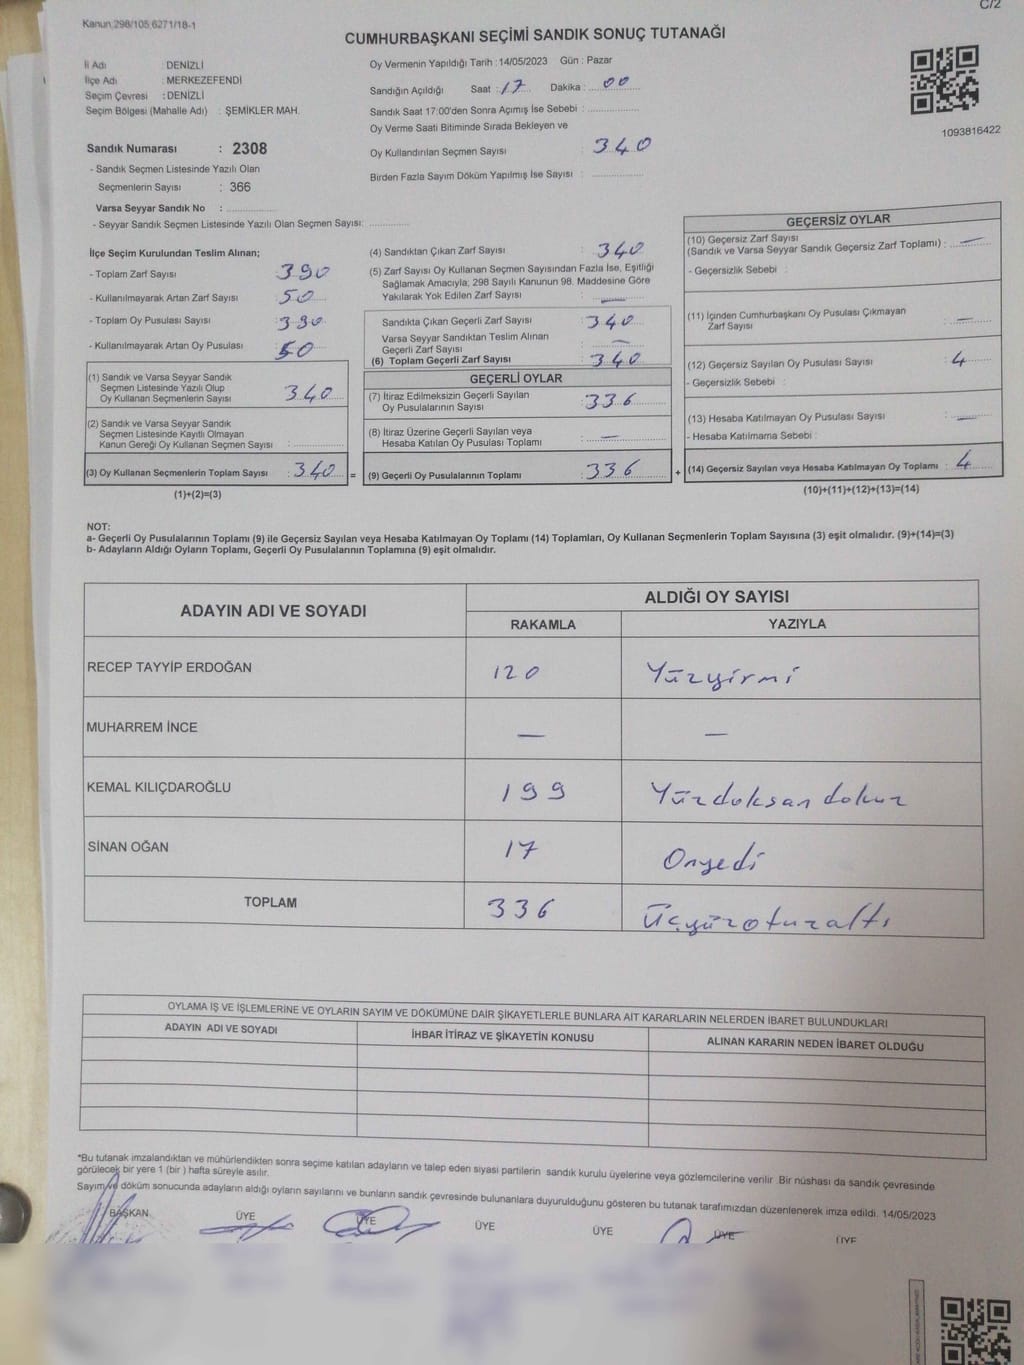 C/2
Kanun 298/105 6271/18-1
CUMHURBAŞKANI SEÇİMİ SANDIK SONUÇ TUTANAĞI
İl Adı : DENİZLİ
İlçe Adı : MERKEZEFENDİ
Seçim Çevresi : DENİZLİ
Seçim Bölgesi (Mahalle Adı) : ŞEMİKLER MAH.
Oy Vermenin Yapıldığı Tarih : 14/05/2023 Gün : Pazar
Sandığın Açıldığı Saat : 17 Dakika : 00
Sandık Saat 17:00'den Sonra Açımış İse Sebebi :
Oy Verme Saati Bitiminde Sırada Bekleyen ve
Oy Kullandırılan Seçmen Sayısı : 340
Birden Fazla Sayım Döküm Yapılmış İse Sayısı :
1093816422
Sandık Numarası : 2308
- Sandık Seçmen Listesinde Yazılı Olan
Seçmenlerin Sayısı : 366
Varsa Seyyar Sandık No :
- Seyyar Sandık Seçmen Listesinde Yazılı Olan Seçmen Sayısı:
İlçe Seçim Kurulundan Teslim Alınan;
- Toplam Zarf Sayısı : 390
- Kullanılmayarak Artan Zarf Sayısı : 50
- Toplam Oy Pusulası Sayısı : 390
- Kullanılmayarak Artan Oy Pusulası : 50
(1) Sandık ve Varsa Seyyar Sandık
Seçmen Listesinde Yazılı Olup
Oy Kullanan Seçmenlerin Sayısı : 340
(2) Sandık ve Varsa Seyyar Sandık
Seçmen Listesinde Kayıtlı Olmayan
Kanun Gereği Oy Kullanan Seçmen Sayısı :
(3) Oy Kullanan Seçmenlerin Toplam Sayısı : 340 =
(1)+(2)=(3)
(4) Sandıktan Çıkan Zarf Sayısı : 340
(5) Zarf Sayısı Oy Kullanan Seçmen Sayısından Fazla İse, Eşitliği
Sağlamak Amacıyla; 298 Sayılı Kanunun 98. Maddesine Göre
Yakılarak Yok Edilen Zarf Sayısı : —
Sandıkta Çıkan Geçerli Zarf Sayısı : 340
Varsa Seyyar Sandıktan Teslim Alınan
Geçerli Zarf Sayısı : —
(6) Toplam Geçerli Zarf Sayısı : 340
GEÇERLİ OYLAR
(7) İtiraz Edilmeksizin Geçerli Sayılan
Oy Pusulalarının Sayısı : 336
(8) İtiraz Üzerine Geçerli Sayılan veya
Hesaba Katılan Oy Pusulası Toplamı : —
(9) Geçerli Oy Pusulalarının Toplamı : 336 +
GEÇERSİZ OYLAR
(10) Geçersiz Zarf Sayısı
(Sandık ve Varsa Seyyar Sandık Geçersiz Zarf Toplamı) : —
- Geçersizlik Sebebi :
(11) İçinden Cumhurbaşkanı Oy Pusulası Çıkmayan
Zarf Sayısı : —
(12) Geçersiz Sayılan Oy Pusulası Sayısı : 4
- Geçersizlik Sebebi :
(13) Hesaba Katılmayan Oy Pusulası Sayısı : —
- Hesaba Katılmama Sebebi :
(14) Geçersiz Sayılan veya Hesaba Katılmayan Oy Toplamı : 4
(10)+(11)+(12)+(13)=(14)
NOT:
a- Geçerli Oy Pusulalarının Toplamı (9) ile Geçersiz Sayılan veya Hesaba Katılmayan Oy Toplamı (14) Toplamları, Oy Kullanan Seçmenlerin Toplam Sayısına (3) eşit olmalıdır. (9)+(14)=(3)
b- Adayların Aldığı Oyların Toplamı, Geçerli Oy Pusulalarının Toplamına (9) eşit olmalıdır.
ADAYIN ADI VE SOYADI ALDIĞI OY SAYISI
RAKAMLA YAZIYLA
RECEP TAYYİP ERDOĞAN 120 Yüzyirmi
MUHARREM İNCE — —
KEMAL KILIÇDAROĞLU 199 Yüzdoksan dokuz
SİNAN OĞAN 17 Onyedi
TOPLAM 336 Üçyüzotuzaltı
OYLAMA İŞ VE İŞLEMLERİNE VE OYLARIN SAYIM VE DÖKÜMÜNE DAİR ŞİKAYETLERLE BUNLARA AİT KARARLARIN NELERDEN İBARET BULUNDUKLARI
ADAYIN ADI VE SOYADI İHBAR İTİRAZ VE ŞİKAYETİN KONUSU ALINAN KARARIN NEDEN İBARET OLDUĞU
*Bu tutanak imzalandıktan ve mühürlendikten sonra seçime katılan adayların ve talep eden siyasi partilerin sandık kurulu üyelerine veya gözlemcilerine verilir .Bir nüshası da sandık çevresinde
görülecek bir yere 1 (bir ) hafta süreyle asılır.
Sayım ve döküm sonucunda adayların aldığı oyların sayılarını ve bunların sandık çevresinde bulunanlara duyurulduğunu gösteren bu tutanak tarafımızdan düzenlenerek imza edildi. 14/05/2023
BAŞKAN ÜYE ÜYE ÜYE ÜYE ÜYE ÜYE